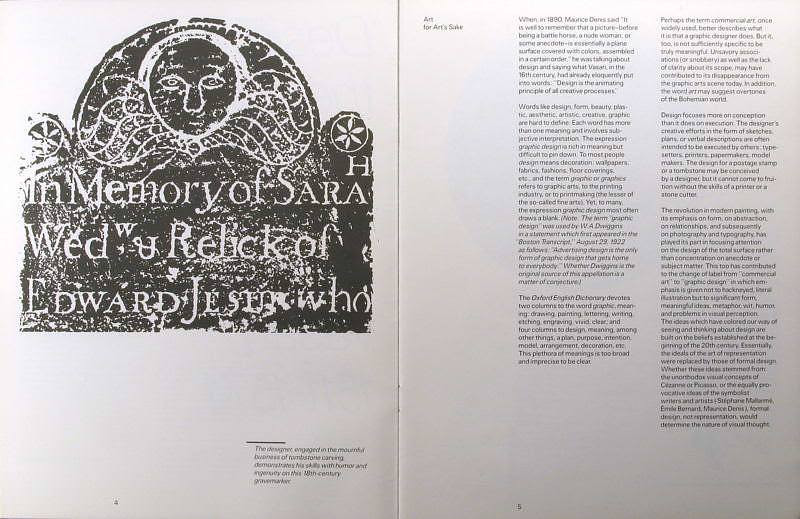 H
In Memory of SARA
Wed.w u Relick of
EDWARD JESTIN who
The designer, engaged in the mournful
business of tombstone carving,
demonstrates his skills with humor and
ingenuity on this 18th-century
gravemarker.
4
Art
for Art's Sake
When, in 1890, Maurice Denis said "It
is well to remember that a picture–before
being a battle horse, a nude woman, or
some anecdote–is essentially a plane
surface covered with colors, assembled
in a certain order," he was talking about
design and saying what Vasari, in the
16th century, had already eloquently put
into words: "Design is the animating
principle of all creative processes."
Words like design, form, beauty, plas-
tic, aesthetic, artistic, creative, graphic
are hard to define. Each word has more
than one meaning and involves sub-
jective interpretation. The expression
graphic design is rich in meaning but
difficult to pin down. To most people
design means decoration: wallpapers,
fabrics, fashions, floor coverings,
etc., and the term graphic or graphics
refers to graphic arts, to the printing
industry, or to printmaking (the lesser of
the so-called fine arts). Yet, to many,
the expression graphic design most often
draws a blank. (Note: The term "graphic
design" was used by W.A. Dwiggins
in a statement which first appeared in the
"Boston Transcript," August 29, 1922
as follows: "Advertising design is the only
form of graphic design that gets home
to everybody." Whether Dwiggins is the
original source of this appellation is a
matter of conjecture.)
The Oxford English Dictionary devotes
two columns to the word graphic, mean-
ing: drawing, painting, lettering, writing,
etching, engraving, vivid, clear; and
four columns to design, meaning, among
other things, a plan, purpose, intention,
model, arrangement, decoration, etc.
This plethora of meanings is too broad
and imprecise to be clear.
Perhaps the term commercial art, once
widely used, better describes what
it is that a graphic designer does. But it,
too, is not sufficiently specific to be
truly meaningful. Unsavory associ-
ations (or snobbery) as well as the lack
of clarity about its scope, may have
contributed to its disappearance from
the graphic arts scene today. In addition,
the word art may suggest overtones
of the Bohemian world.
Design focuses more on conception
than it does on execution. The designer's
creative efforts in the form of sketches,
plans, or verbal descriptions are often
intended to be executed by others: type-
setters, printers, papermakers, model
makers. The design for a postage stamp
or a tombstone may be conceived
by a designer, but it cannot come to frui-
tion without the skills of a printer or a
stone cutter.
The revolution in modern painting, with
its emphasis on form, on abstraction,
on relationships, and subsequently
on photography and typography, has
played its part in focusing attention
on the design of the total surface rather
than concentration on anecdote or
subject matter. This too has contributed
to the change of label from "commercial
art" to "graphic design" in which em-
phasis is given not to hackneyed, literal
illustration but to significant form,
meaningful ideas, metaphor, wit, humor,
and problems in visual perception.
The ideas which have colored our way of
seeing and thinking about design are
built on the beliefs established at the be-
ginning of the 20th century. Essentially,
the ideals of the art of representation
were replaced by those of formal design.
Whether these ideas stemmed from
the unorthodox visual concepts of
Cézanne or Picasso, or the equally pro-
vocative ideas of the symbolist
writers and artists (Stéphane Mallarmé,
Émile Bernard, Maurice Denis), formal
design, not representation, would
determine the nature of visual thought.
5